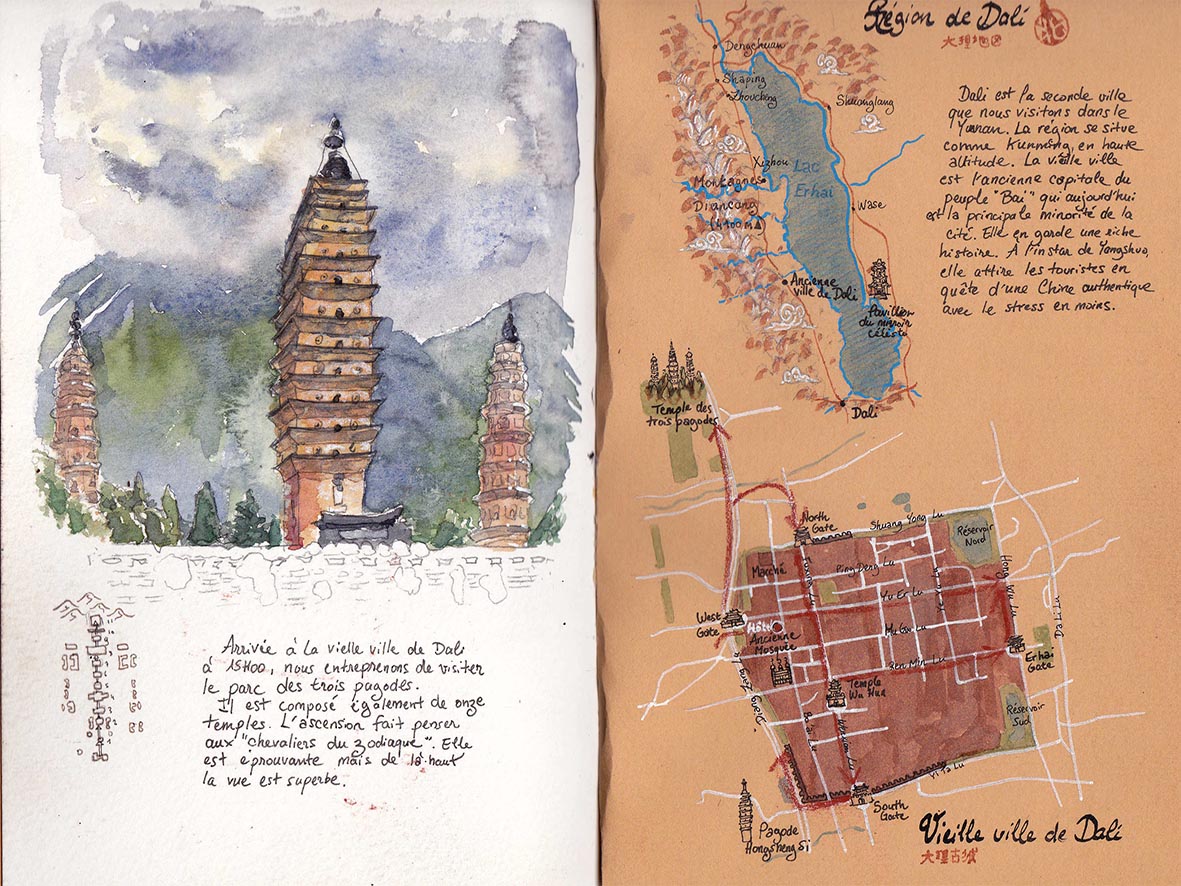 Arrivée à la vielle ville de Dali
à 15H00, nous entreprenons de visiter
le parc des trois pagodes.
Il est composé également de onze
temples. L'ascension fait penser
aux "chevaliers du zodiaque". Elle
est éprouvante mais de là-haut
la vue est superbe.
Région de Dali
大理地区
Dengchuan
Shaping
Zhoucheng
Shuanglang
Xizhou
Lac
Erhai
Montagnes
Diancang
(4100m
Wase
Ancienne
ville de Dali
Pavillon
du miroir
céleste
Dali
Dali est la seconde ville
que nous visitons dans le
Yunnan. La région se situe
comme Kunming, en haute
altitude. La vieille ville
est l'ancienne capitale du
peuple "Bai" qui aujourd'hui
est la principale minorité de la
cité. Elle en garde une riche
histoire. À l'instar de Yangshuo,
elle attire les touristes en
quête d'une Chine authentique
avec le stress en moins.
Temple des
trois pagodes
North
Gate
Shuang Yong Lu
Réservoir
Nord
Marché
Ping Deng Lu
Yu Er Lu
Hong Wu Lu
Da Li Lu
West
Gate
Hôtel
Ancienne
Mosquée
Ren Min Lu
Erhai
Gate
Temple
Wu Hua
Réservoir
Sud
Yi Ta Lu
South
Gate
Pagode
Hongsheng Si
Vieille ville de Dali
大理古城